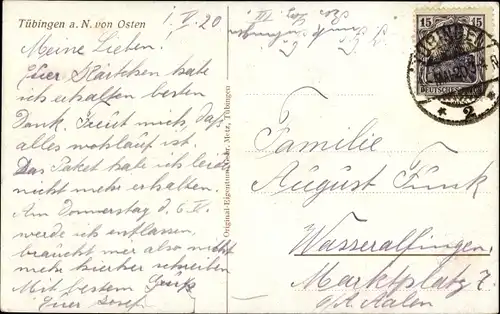 Tübingen a. N. von Osten
1. V. 20
Meine Lieben.
Euer Kärtchen habe
ich erhalten besten
Dank. Freut mich, daß
alles wohlauf ist.
Das Paket habe ich leider
nicht mehr erhalten.
Am Donnerstag d. 6. V.
werde ich entlassen,
braucht mir also nicht
mehr hierher schreiben
Mit bestem Gruß
Euer Josef
Original-Eigentum Metz, Tübingen
15 15
DEUTSCHES
TÜBINGEN
* 2 *
Familie
August Funk
Wasseralfingen
Marktplatz 7
O/A Aalen